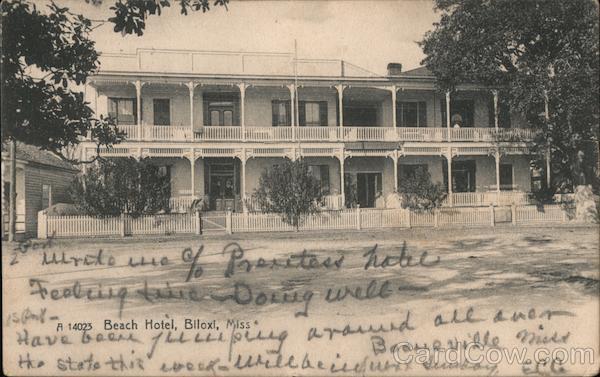 Write me c/o Prentess hotel
Feeling fine - Doing well -
A 14023 Beach Hotel, Biloxi, Miss.
Have been jumping around all over
Booneville Miss
the state this week - will be in
CardCow.com